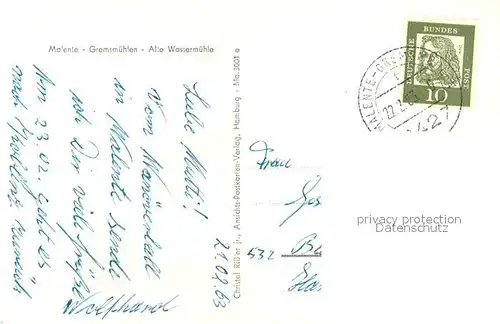 Malente - Gremsmühlen - Alte Wassermühle
Liebe Mutti!
Vom Manöverball
in Malente sende
ich Dir viele Grüße
Am 23.02. geht es
nach zurück
Wolfhard
21.02.63
Christel Rißler jr., Ansichts-Postkarten-Verlag, Hamburg - Ma. 3001 a
Frau
532
DEUTSCHE
BUNDES
POST
10
MALENTE-GREMSMÜHLEN
427
privacy protection
Datenschutz